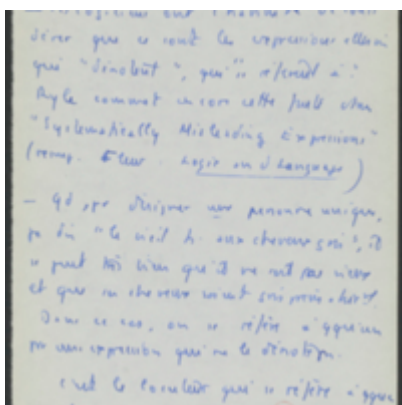 logiciens ont l'habitude de consi
dérer que ce sont les expressions elles
qui "dénotent", qui "se réfèrent à".
Ryle commet encore cette faute dans
"Systematically Misleading Expressions"
(Flew. Logic and Language)
— Qd, pr désigner une personne unique,
je dis "le vieil h. aux cheveux gris", il
se peut très bien qu'il ne soit pas vieux
et que ses cheveux soient gris
Dans ce cas, on se réfère à qquun
par une expression qui ne le dénote pas.
c'est le locuteur qui se réfère à qquun